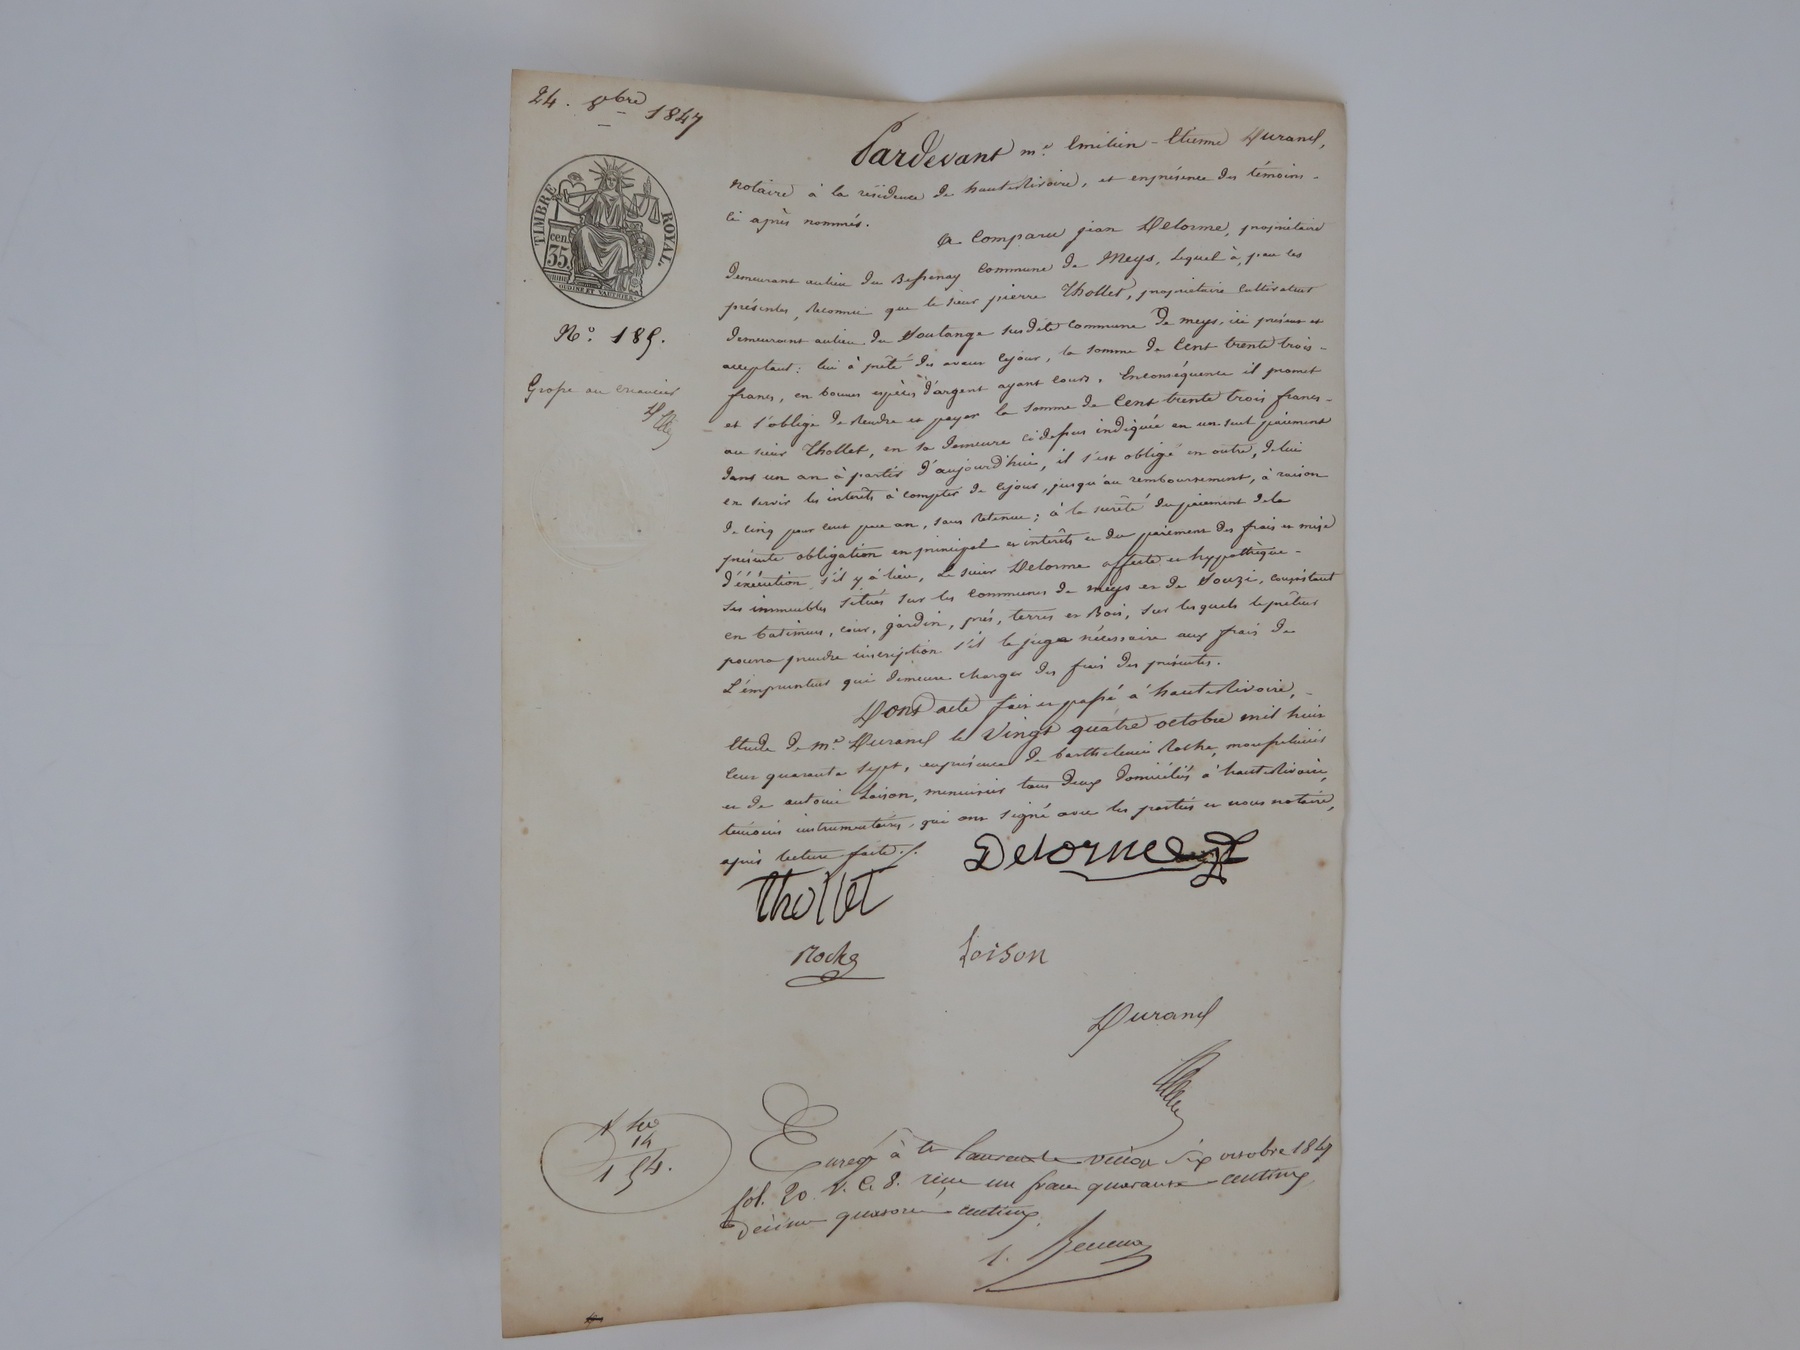 24. 8bre 1847
TIMBRE ROYAL.
cen.
35.
OUDINE ET VAUTHIER
N.o 185.
Grosse au créancier
Pardevant m.e Emilien-Etienne Durand,
notaire à la résidence de hauterivoire, et en présence des témoins
ci après nommés.
A Comparu jean Delorme, propriétaire
demeurant au lieu du Bessenay Commune de Meys, lequel à, par les
présentes, Reconnu que le sieur pierre Thollet, propriétaire Cultivateur
demeurant au lieu du Soulange susdite commune de meys, ici présent et
acceptant; lui à prêté dès avant ce jour, la somme de Cent trente trois
francs, en bonnes espèces d'argent ayant cours. En conséquence il promet
et s'oblige de Rendre et payer la somme de Cent trente trois francs
au sieur Thollet, en sa demeure ci dessus indiquée en un seul paiement
dans un an à partir d'aujourd'hui, il s'est obligé en outre, de lui
en servir les intérêts à compter de ce jour, jusqu'au remboursement, à raison
de cinq pour cent par an, sans Retenue; à la sureté du paiement de la
présente obligation en principal et intérêts et du paiement des frais et mise
d'éxécution s'il y à lieu, Le sieur Delorme affecte et hyppothèque
ses immeubles situés sur les communes de meys et de Souzi, consistant
en batimens, cour, jardin, prés, terres et Bois, sur lesquels le prêteur
pourra prendre inscription s'il le juge nécessaire aux frais de
L'emprunteur qui demeure chargé des frais des présentes.
Dont acte fait et passé à hauterivoire,
Etude de m.e Durand le Vingt quatre octobre mil huit
cent quarante sept, en présence de barthelemi Roche,
et de antoine Loison, menuisier tous deux domiciliés à hauterivoire,
témoins instrumentaires, qui ont signé avec les parties et nous notaire,
après lecture faite./.
Delorme
Thollet
Roche
Loison
Durand
14
1 54.
Enreg à St Laurent le vingt six octobre 1847
fol. 20 v. C. 8. reçu un franc quarante centimes,
décime quatorze centimes.